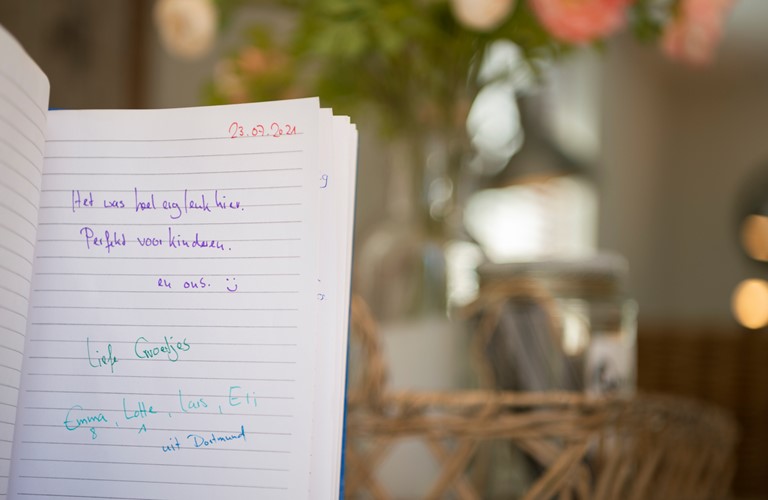 23.07.2021
Het was heel erg leuk hier.
Perfekt voor kinderen.
en ons. :)
Liefe Groetjes
Emma, Lotte, Lars,
8
uit Dortmund